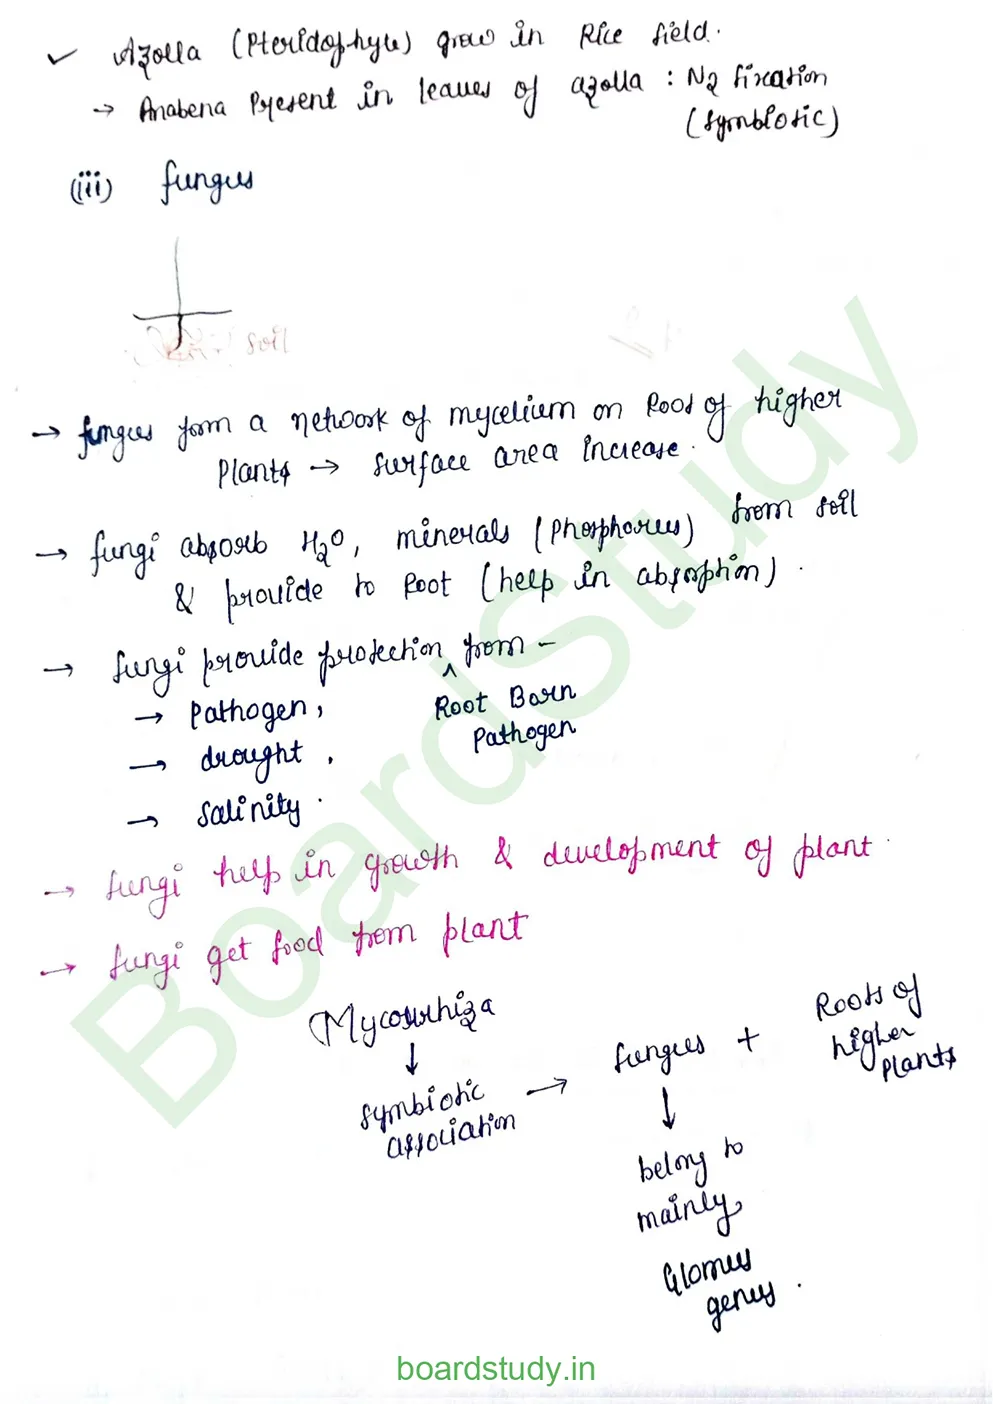 ✓ Azolla (Pteridophyte) grow in Rice field.
→ Anabena Present in leaves of azolla : N2 fixation
(symbiotic)
(iii) fungus
soil
→ fungus form a network of mycelium on Root of higher
Plants → surface area increase.
→ fungi absorb H2O, minerals (Phosphorus) from soil
& provide to Root (help in absorption).
→ fungi provide protection ^ from –
→ Pathogen, Root Born
Pathogen
→ drought,
→ salinity.
→ fungi help in growth & development of plant.
→ fungi get food from plant
Mycorrhiza
↓
symbiotic
association → fungus + Roots of
higher
Plants
↓
belong to
mainly
Glomus
genus.
BoardStudy
boardstudy.in